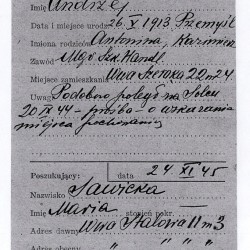 Imię Andrzej
Data i miejsce urodz. 26.X 1913 Przemyśl
Imiona rodziców Antonina, Kazimierz
Zawód Mgr. Szk. Handl.
Miejsce zamieszkania W-wa Szeroka 22 m 24
Uwagi Podobno poległ na Solcu
20 IX 44 - prośba - o wskazanie
miejsca pochowania
Poszukujący: data 24 XI 45
Nazwisko Sawicka
Imię Maria stopień pokr.
Adres dawny W-wa Stalowa 11 m 3
Adres obecny " " " "